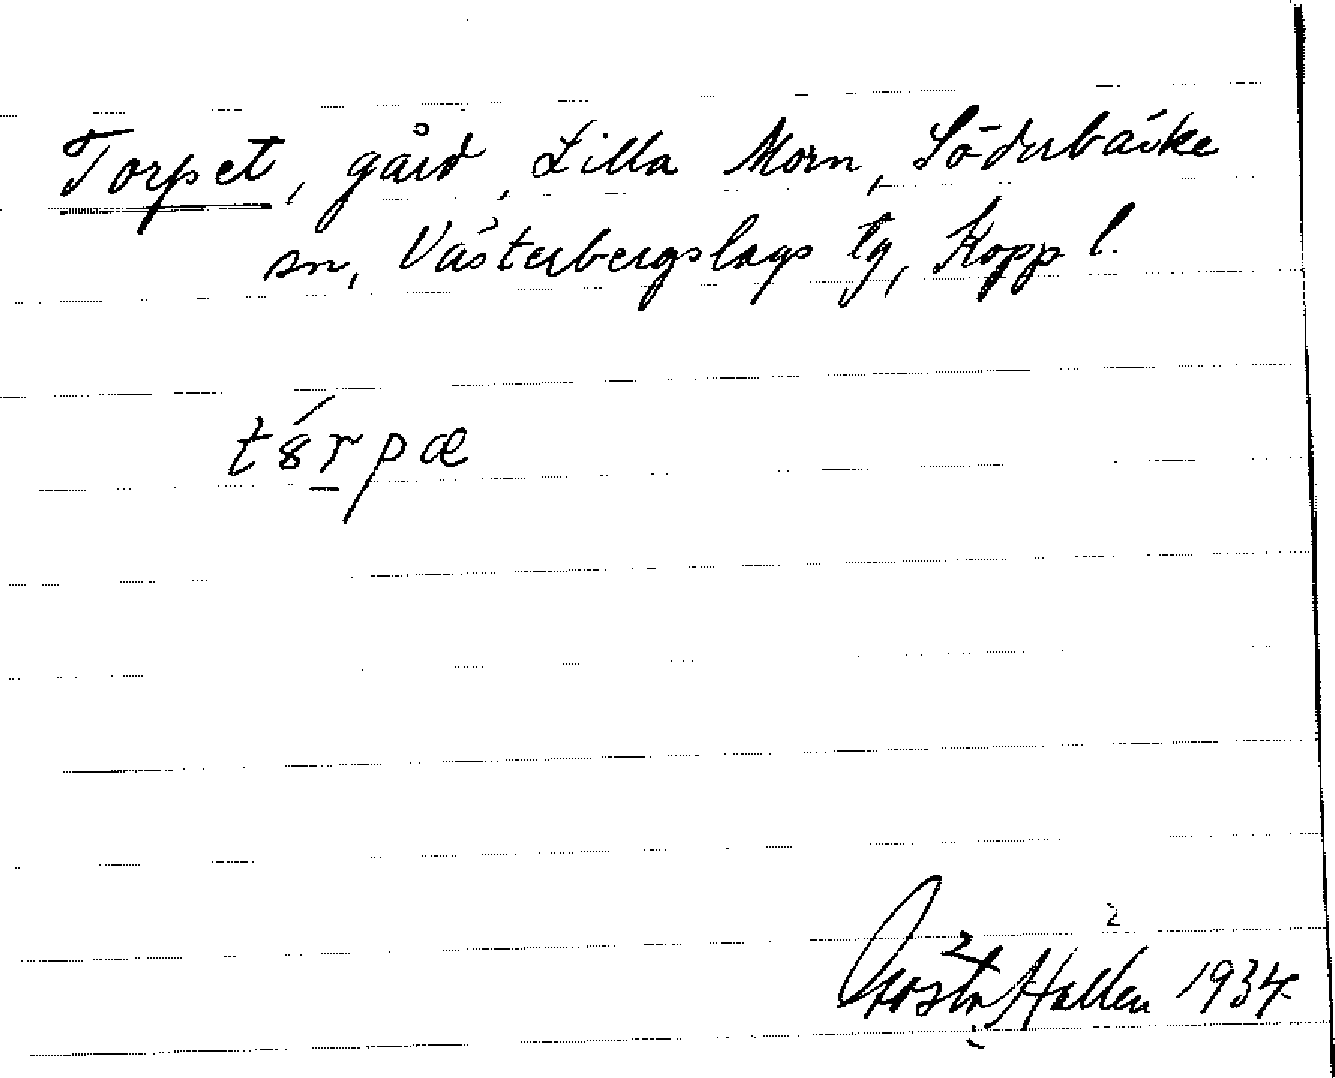 Torpet, gård, Lilla Morn, Söderbärke
sn, Västerbergslags tg, Kopp l.
Gösta Hallén 1934